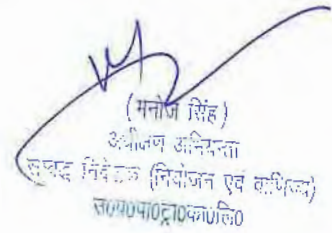 (मनोज सिंह)
अधीक्षण अभियन्ता
सम्बद्ध निदेशक (नियोजन एवं वाणिज्य)
उ०प्र०पा०ट्रां०का०लि०